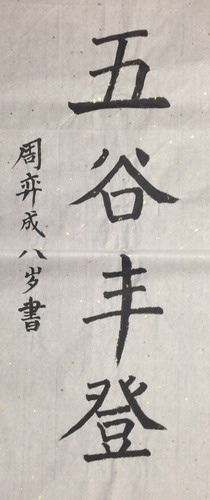 五谷丰登
周弈成八岁書